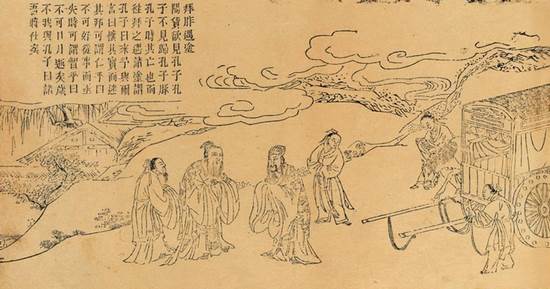 拜胙遇途
陽貨欲見孔子孔
子不見歸孔子豚
孔子時其亡也而
往拜之遇諸塗謂
孔子曰來予與爾
言曰懷其寶而迷
其邦可謂仁乎曰
不可好從事而亟
失時可謂智乎曰
不可日月逝矣歲
不我與孔子曰諾
吾將仕矣